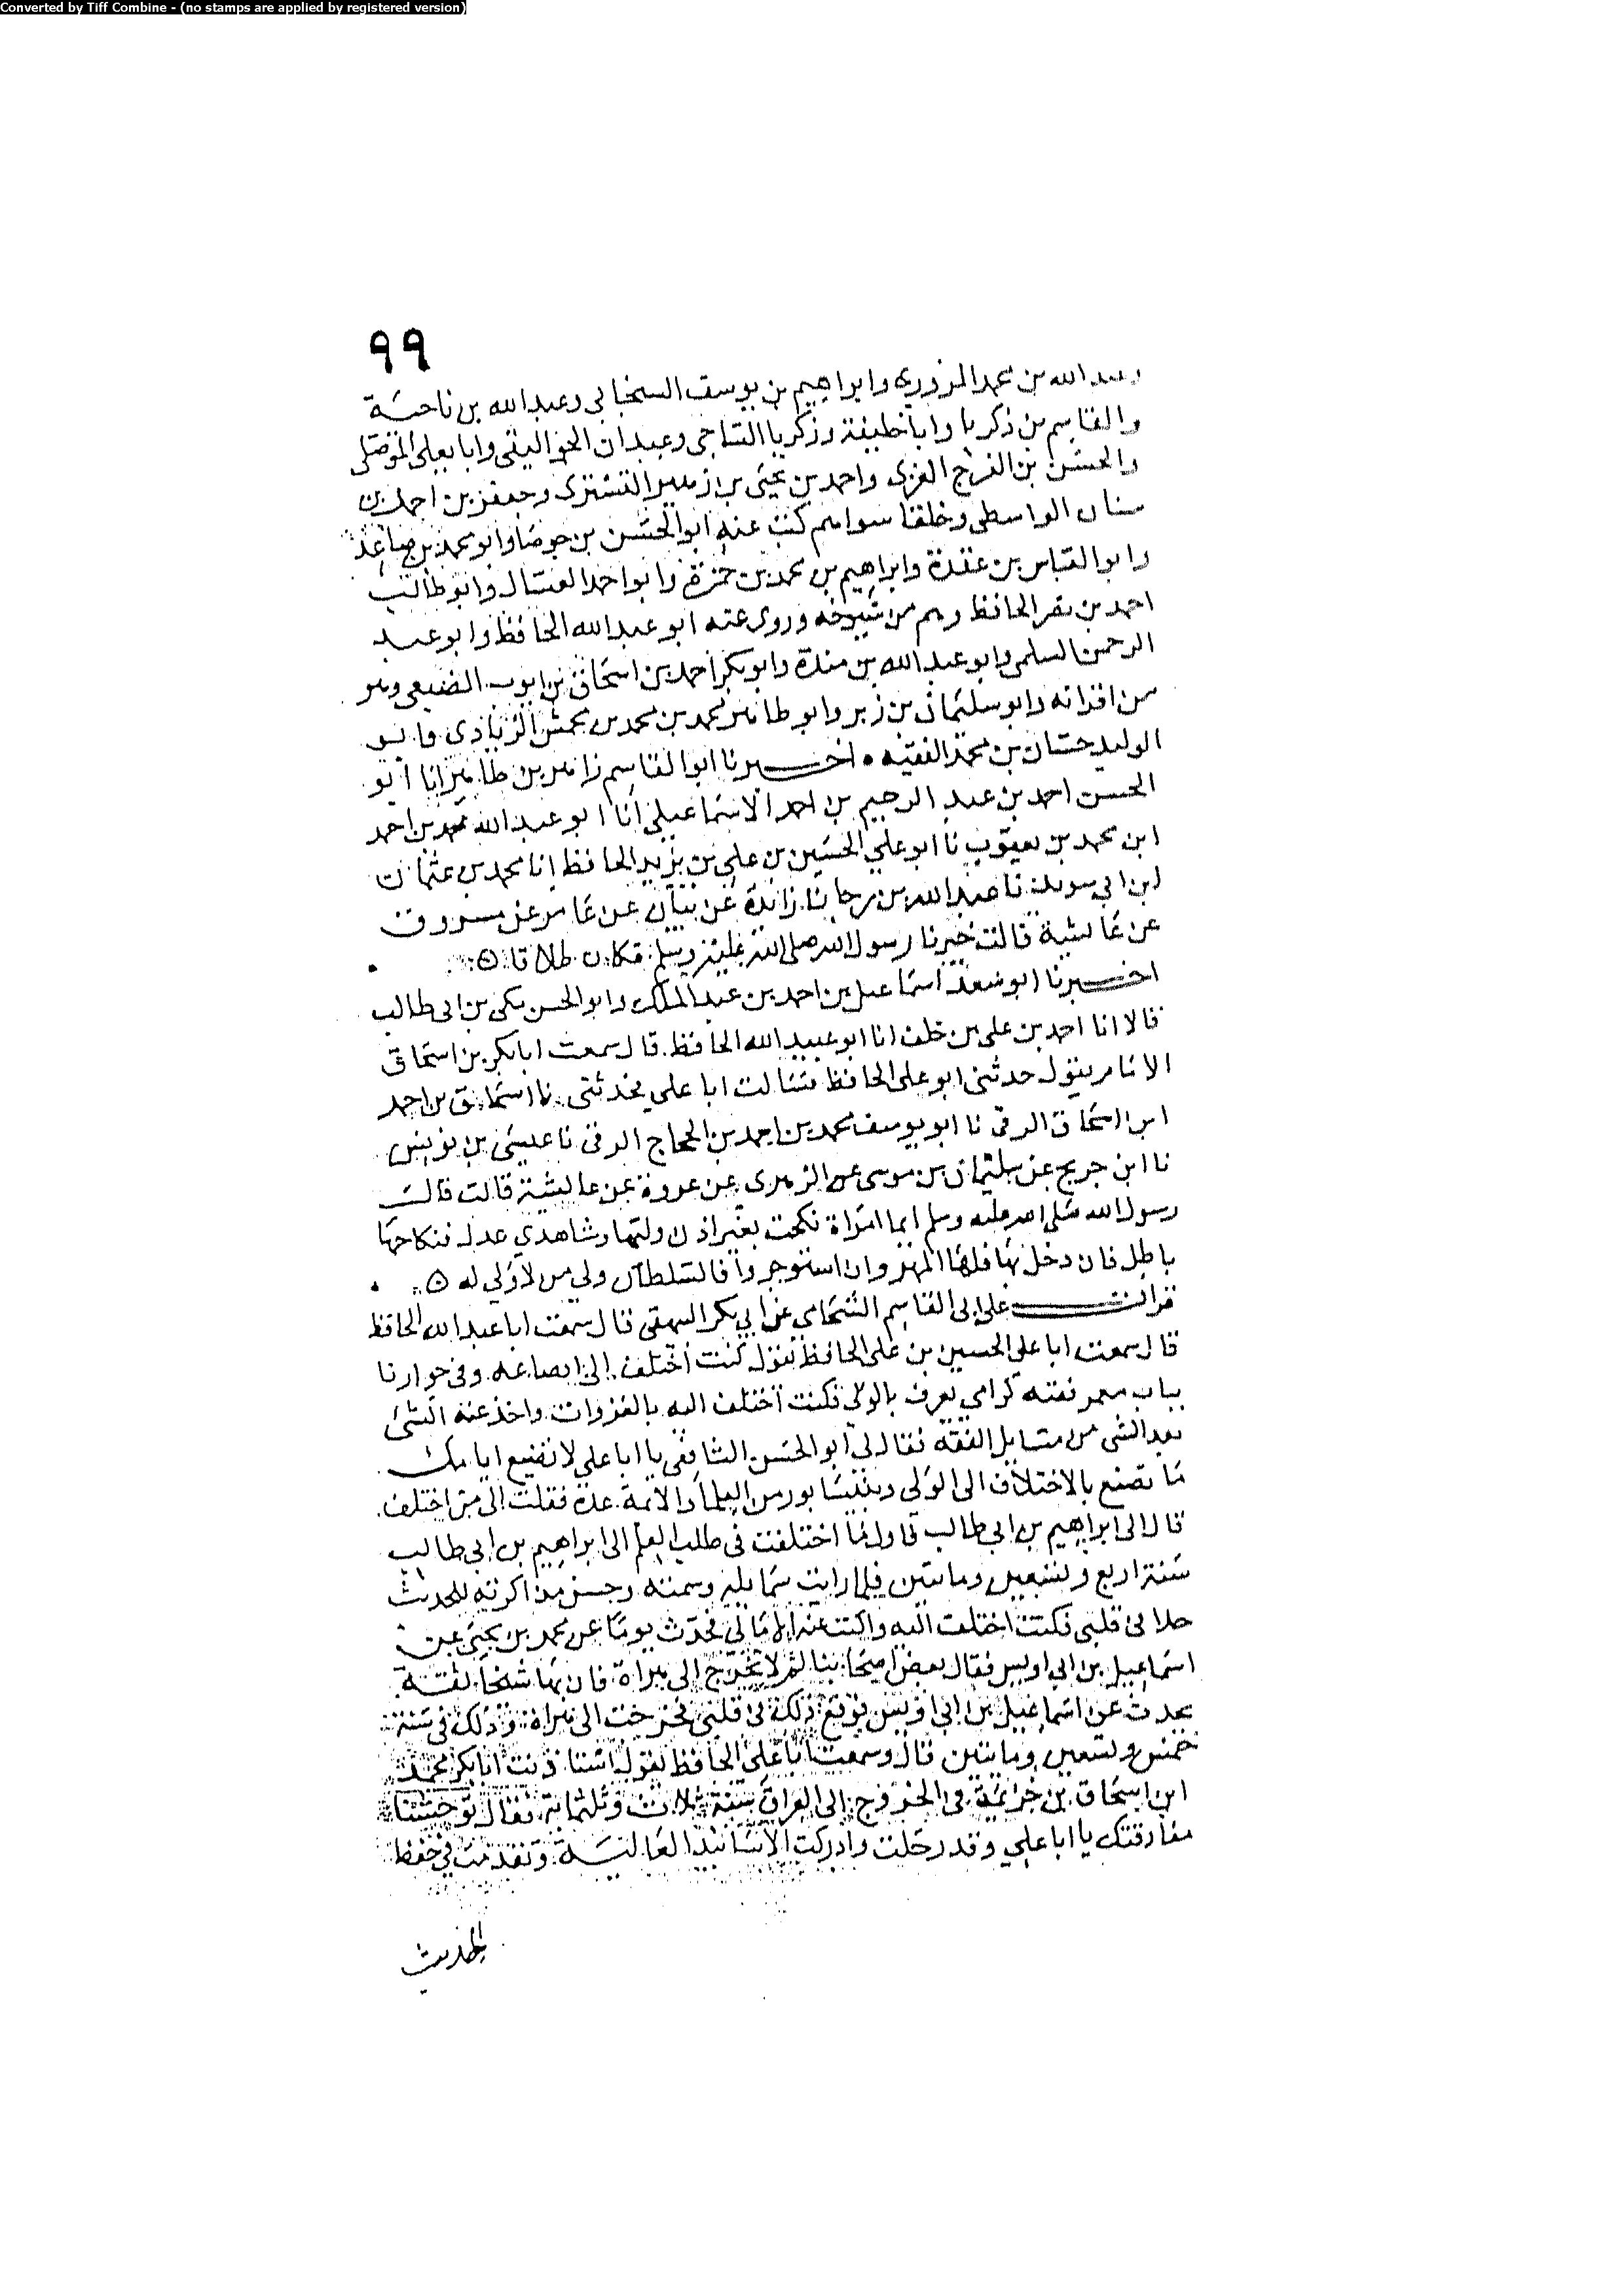 Converted by Tiff Combine - (no stamps are applied by registered version)
٩٩
وعبد الله بن محمد المروزي وابراهيم بن يوسف السنجاني وعبد الله بن ناجية
والقاسم بن زكريا وابا خليفة وزكريا الساجي وعبدان الجواليقي وابا يعلى الموصلي
والحسن بن الفرج الغزي واحمد بن يحيى بن زهير التستري وجعفر بن احمد بن
سنان الواسطي وخلقا سواهم كتب عنه ابو الحسن بن جوصا وابو محمد بن صاعد
وابو العباس بن عقدة وابراهيم بن محمد بن حمزة وابو احمد العسال وابو طالب
احمد بن نصر الحافظ وهم من شيوخه وروى عنه ابو عبد الله الحافظ وابو عبد
الرحمن السلمي وابو عبد الله بن مندة وابو بكر احمد بن اسحاق بن ايوب الضبعي وهو
من اقرانه وابو سليمان بن زبر وابو طاهر محمد بن محمد بن محمش الزيادي وابو
الوليد حسان بن محمد الفقيه • اخبرنا ابو القاسم زاهر بن طاهر انا ابو
الحسن احمد بن عبد الرحيم بن احمد الاسماعيلي انا ابو عبد الله محمد بن احمد
ابن محمد بن يعقوب نا ابو علي الحسين بن علي بن يزيد الحافظ انا محمد بن عثمان
ابن ابي سويد نا عبد الله بن رجا نا زائدة عن بيان عن عامر عن مسروق
عن عائشة قالت خيرنا رسول الله صلى الله عليه وسلم فكان طلاقا ه
اخبرنا ابو سعد اسماعيل بن احمد بن عبد الملك وابو الحسن مكي بن ابي طالب
قالا انا احمد بن علي بن خلف انا ابو عبد الله الحافظ قال سمعت ابا بكر بن اسحاق
الامام يقول حدثني ابو علي الحافظ فسالت ابا علي فحدثني نا اسحاق بن احمد
ابن اسحاق الرقي نا ابو يوسف محمد بن احمد بن الحجاج الرقي نا عيسى بن يونس
نا ابن جريج عن سليمان بن موسى عن الزهري عن عروة عن عائشة قالت قال
رسول الله صلى الله عليه وسلم ايما امراة نكحت بغير اذن وليها وشاهدي عدل فنكاحها
باطل فان دخل بها فلها المهر وان اشتجروا فالسلطان ولي من لا ولي له ه
قرات على ابي القاسم الشحامي عن ابي بكر البيهقي قال سمعت ابا عبد الله الحافظ
قال سمعت ابا علي الحسين بن علي الحافظ يقول كنت اختلف الى الصاغة وفي جوارنا
بباب معمر فقيه كرامي يعرف بالولي فكنت اختلف اليه بالغدوات واخذ عنه الشئ
بعد الشي من مسايل الفقه فقال لي ابو الحسن الشافعي يا ابا علي لا تضيع ايامك
ما تصنع بالاختلاف الى الولي وبنيسابور من العلما والائمة عدة فقلت الى من اختلف
قال الى ابراهيم بن ابي طالب فاول ما اختلفت في طلب العلم الى ابراهيم بن ابي طالب
سنة اربع وتسعين ومايتين فلما رايت شمايله وسمته وحسن مذاكرته للحديث
حلا في قلبي فكنت اختلف اليه واكتب عنه الامالي فحدث يوما عن محمد بن يحيى عن
اسماعيل بن ابي اويس فقال بعض اصحابنا لم لا تخرج الى هراة فان بها شيخا ثقة
يحدث عن اسماعيل بن ابي اويس فوقع ذلك في قلبي فخرجت الى هراة وذلك في سنة
خمس وتسعين ومايتين قال وسمعت ابا علي الحافظ يقول استاذنت ابا بكر محمد
ابن اسحاق بن خزيمة في الخروج الى العراق سنة ثلاث وثلثماية فقال توحشنا
مفارقتك يا ابا علي وقد رحلت وادركت الاسانيد العالية وتقدمت في حفظ
الحديث